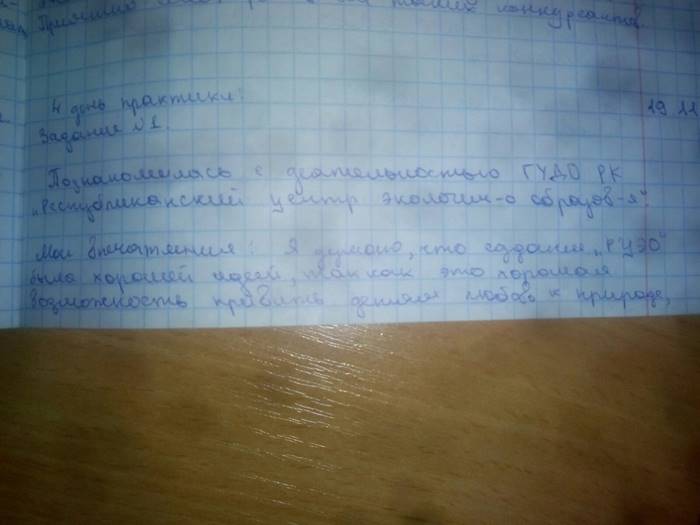 Принима конкурсанта
4 день практики: 19.11
Задание №1.
Познакомилась с деятельностью ГУДО РК
„Республиканский центр экологич-о образов-я"
Мои впечатления: Я думаю, что создание „РЦЭО"
была хорошей идеей, так как это хорошая
возможность привить детям любовь к природе,